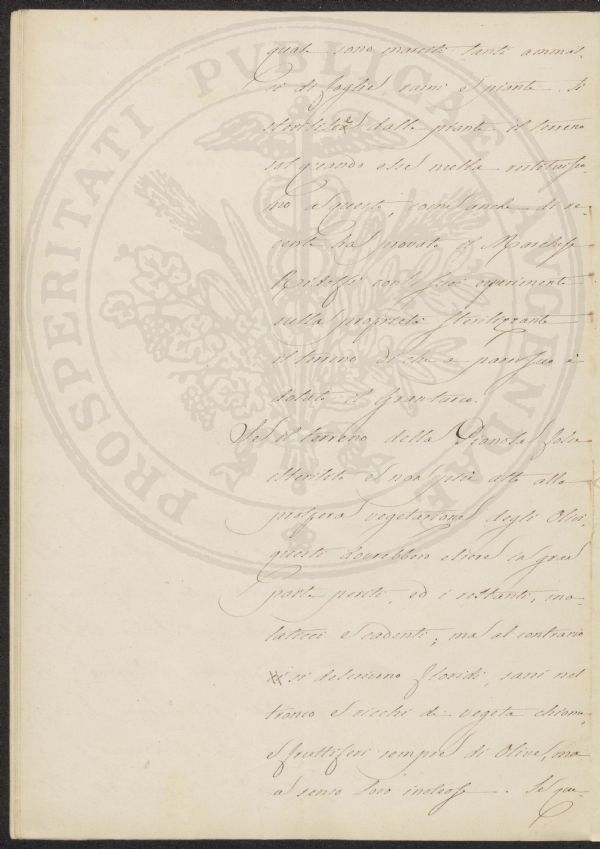 quale sono marciti tanti ammas-
si di foglie, rami e piante. Si
sterilizza dalle piante il terreno
sol quando esse nulla restituisco-
no a questo, come anche di re-
cente ha provato il Marchese
Ridolfi con i suoi esperimenti
sulla proprietà sterilizzante
il terreno di che a parer suo è
dotato il Granturco.
Se il terreno della Pianola fosse
sterilito e non più atto alla
prospera vegetazione degli Olivi,
questi dovrebbero essere in gran
parte periti, ed i restanti, ma-
laticci e cadenti; ma al contrario
si descrivono floridi, sani nel
tronco e ricchi di vegeta chioma,
e fruttiferi sempre di Olive, ma
a senso loro . Se que-
PROSPERITATI PUBLICAE AUGENDAE